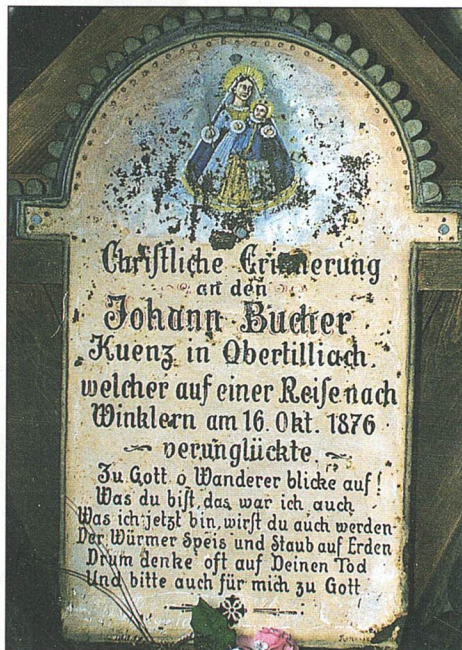 Christliche Erinnerung
an den
Johann Bucher
Kuenz in Obertilliach,
welcher auf einer Reise nach
Winklern am 16. Okt. 1876
verunglückte
Zu Gott o Wanderer blicke auf!
Was du bist, das war ich auch
Was ich jetzt bin, wirst du auch werden
Der Würmer Speis und Staub auf Erden
Drum denke oft auf Deinen Tod
Und bitte auch für mich zu Gott